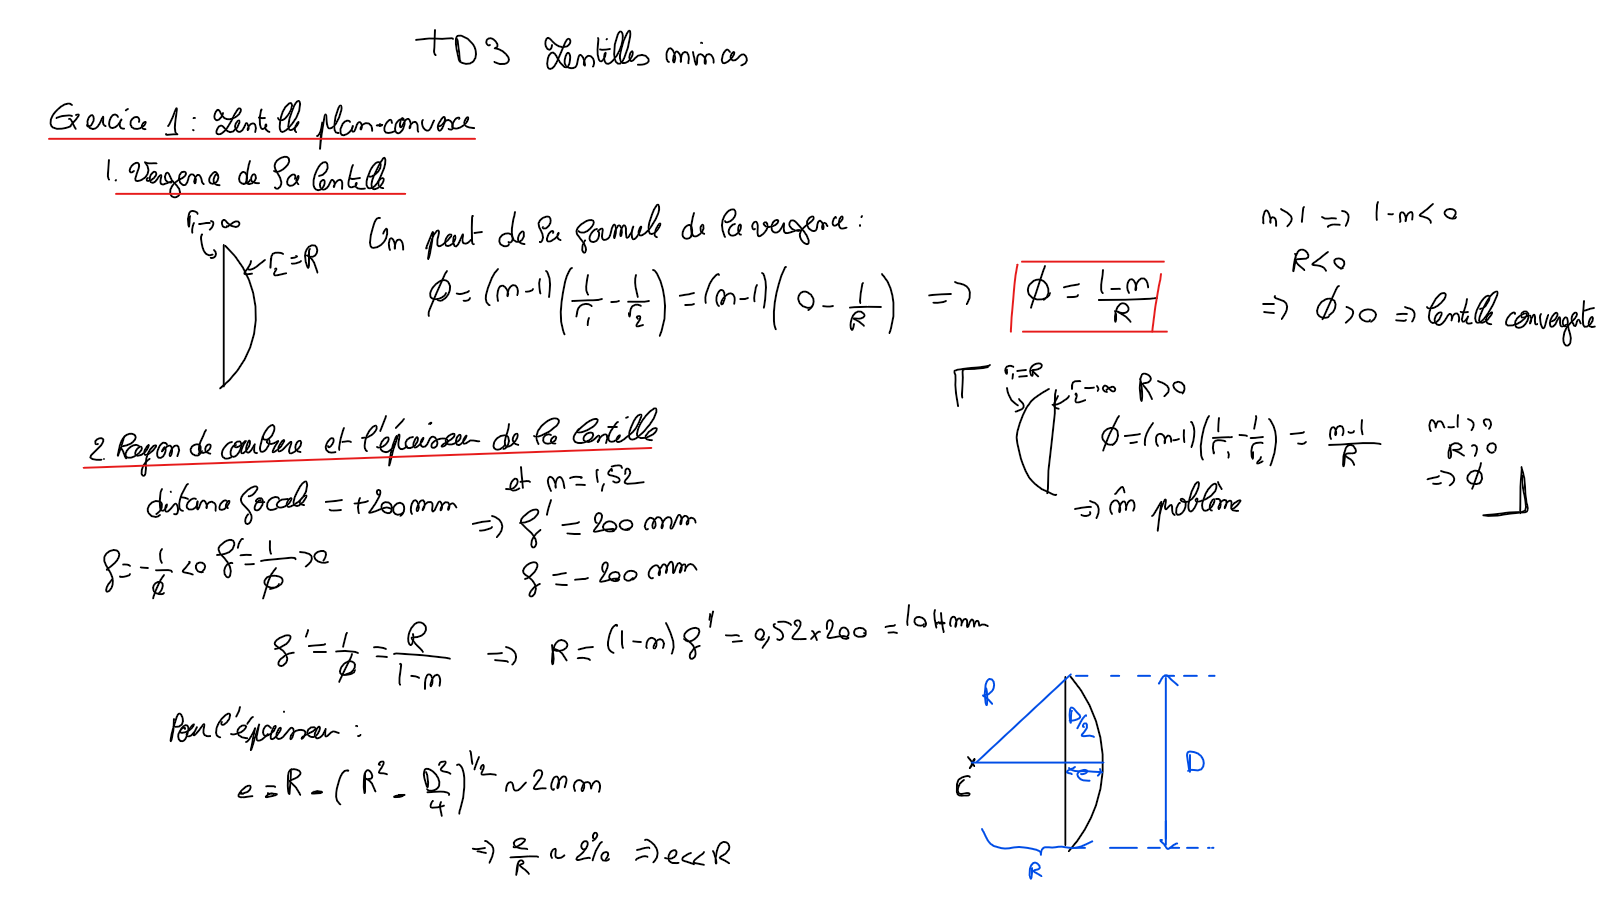 TD3 Lentilles minces
Exercice 1 : Lentille plan-convexe
1. Vergence de la lentille
r₁→∞
r₂=R
On part de la formule de la vergence :
ϕ = (n-1)(1/r₁ - 1/r₂) = (n-1)(0 - 1/R) => ϕ = (1-n)/R
n>1 => 1-n<0
R<0
=> ϕ>0 => lentille convergente
r₁=R
r₂→∞ R>0
ϕ=(n-1)(1/r₁ - 1/r₂) = (n-1)/R
n-1>0
R>0
=> ϕ
=> m̂ problème
2. Rayon de courbure et l'épaisseur de la lentille
distance focale = +200mm et n=1,52
f=-1/ϕ<0 f'=1/ϕ>0
=> f' = 200 mm
f = -200 mm
f' = 1/ϕ = R/(1-n) => R = (1-n)f' = 0,52×200 = 104mm
Pour l'épaisseur :
e = R - (R² - D²/4)^1/2 ~ 2mm
=> e/R ~ 2% => e<<R
R
D/2
e
C
D
R